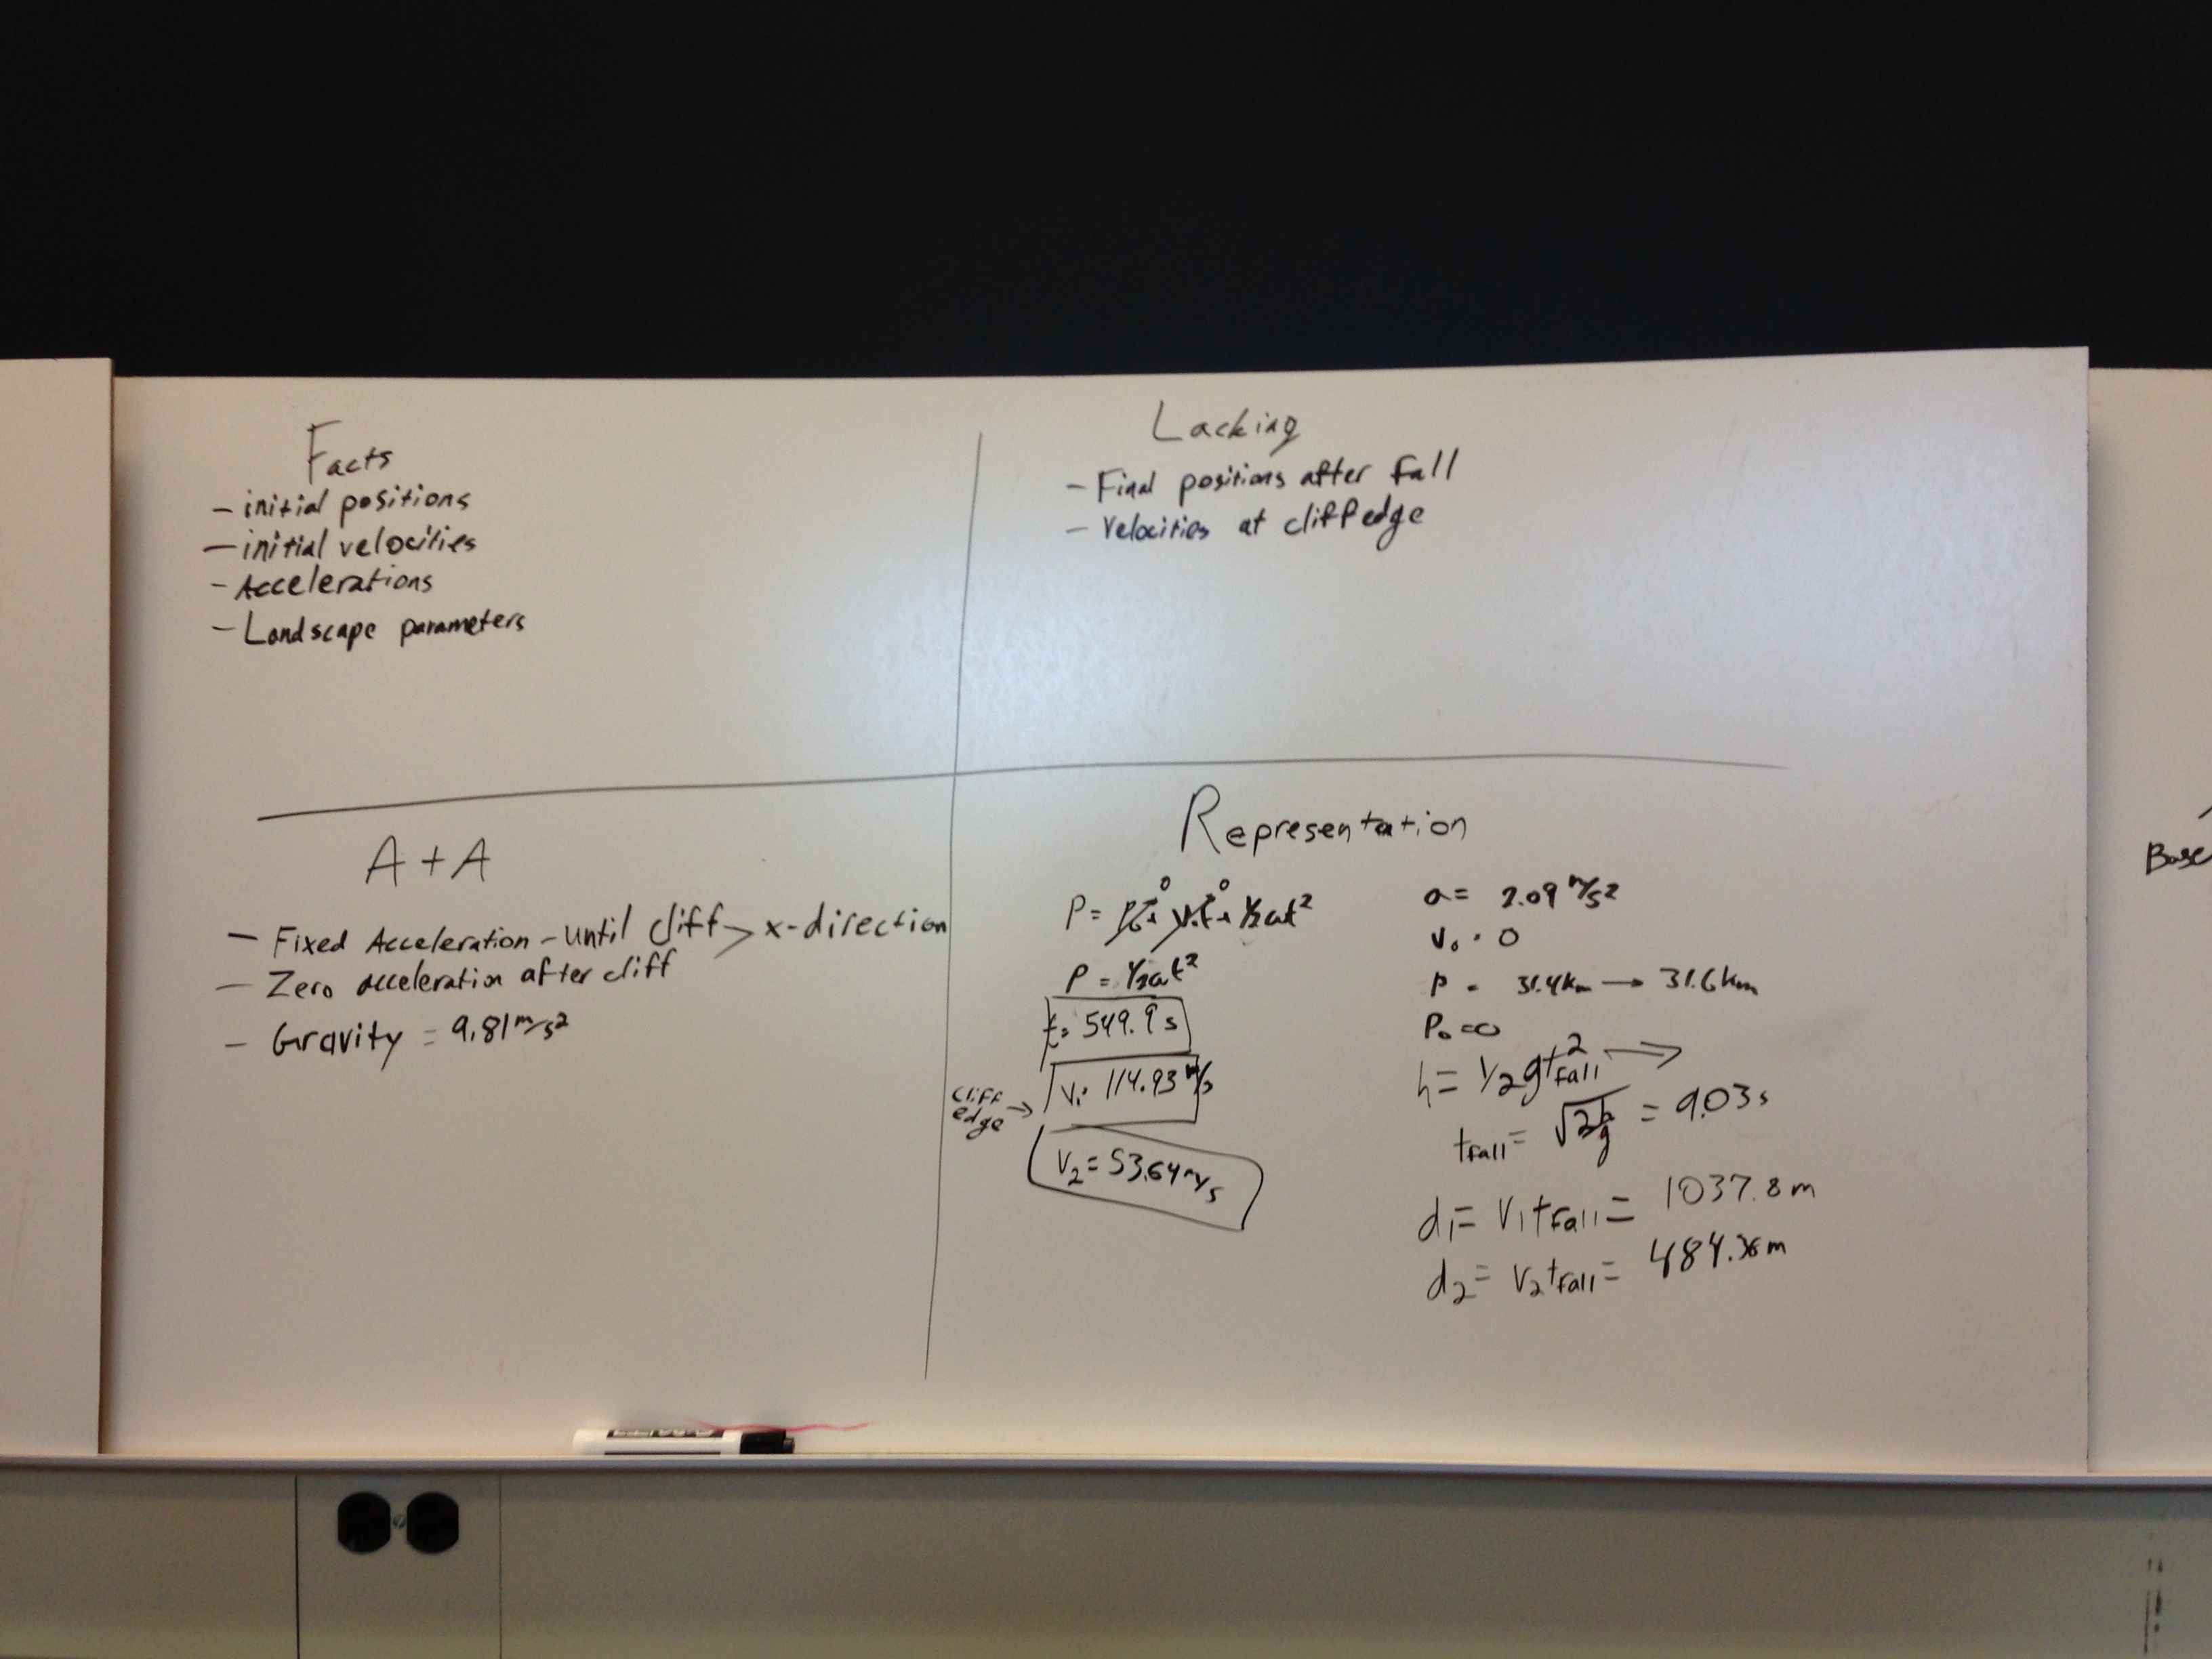 Facts
- initial positions
- initial velocities
- Accelerations
- Landscape parameters
Lacking
- Final positions after fall
- Velocities at cliff edge
A + A
- Fixed Acceleration - until cliff > x-direction
- Zero acceleration after cliff
- Gravity = 9.81 m/s²
Representation
P = P₀ + V₀t + ½at²
0 0
P = ½at²
t = 549.9 s
cliff edge → V₁ = 114.93 m/s
V₂ = 53.64 m/s
a = 2.09 m/s²
V₀ = 0
P = 31.4 km → 31.6 km
P₀ = 0
h = ½ g t²fall →
tfall = √2h/g = 9.03 s
d₁ = V₁ tfall = 1037.8 m
d₂ = V₂ tfall = 484.36 m
Base